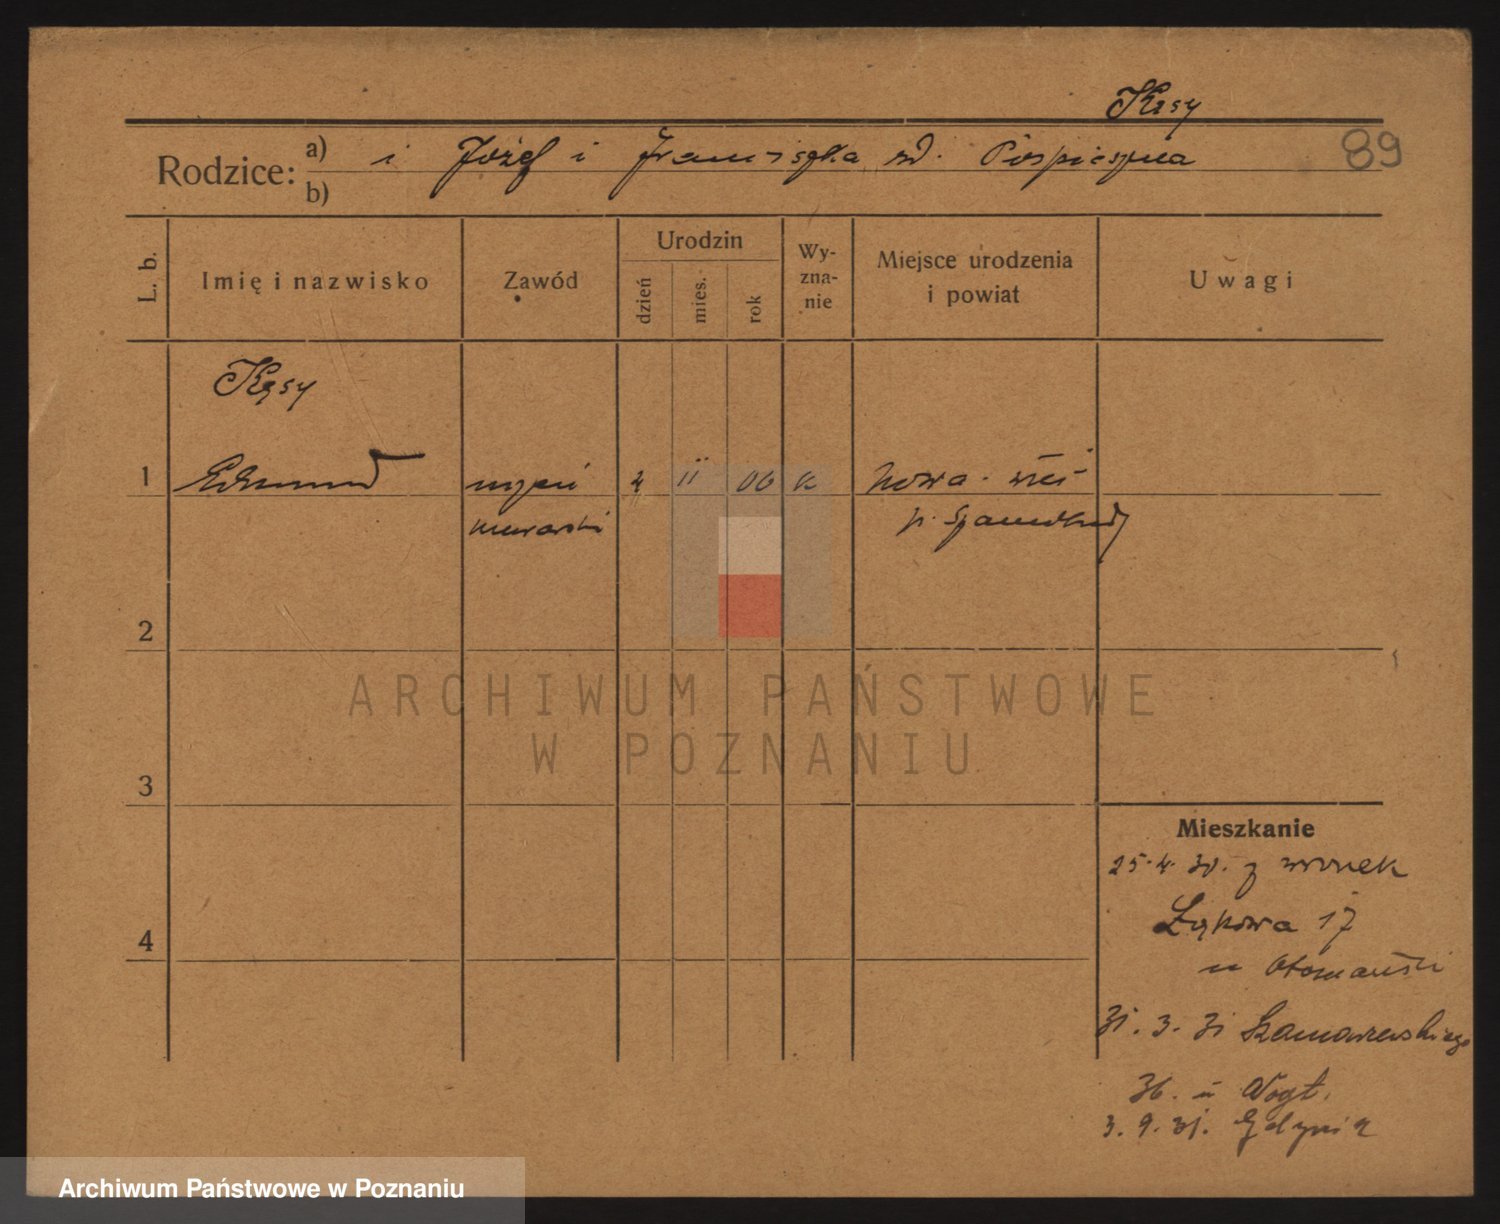 Kęsy
89
Rodzice: a) i Józef i Franciszka zd. Pospieszna
b)
L. b.
Imię i nazwisko
Zawód
Urodzin
dzień
mies.
rok
Wy-
zna-
nie
Miejsce urodzenia
i powiat
Uwagi
Kęsy
1 Edmund
4 II 06 k Nowa-wieś
murarski
p. Szamotuły
2
ARCHIWUM PAŃSTWOWE
W POZNANIU
3
Mieszkanie
25.4.30. z Wronek
4
Łąkowa 17
u
31.3.31 Szamarzewskiego
36. u Vogt.
3.9.31. Gdynia
Archiwum Państwowe w Poznaniu